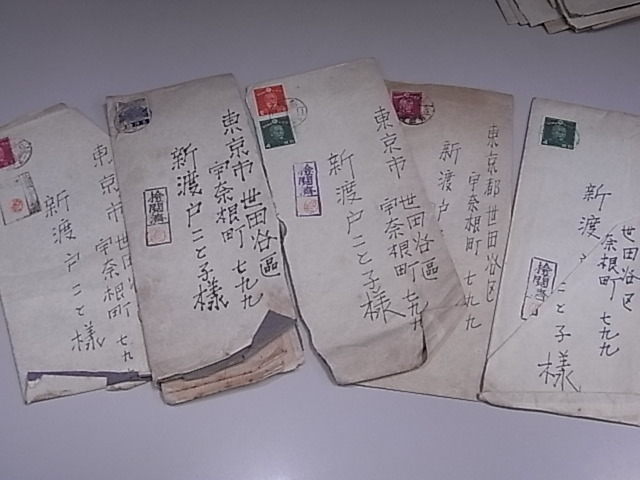 東京市世田谷區
宇奈根町七九九
新渡戸こと様
東京市世田谷區
宇奈根町七九九
新渡戸こと子様
検閲済
東京市世田谷區
宇奈根町七九九
新渡戸こと子様
検閲済
東京都世田谷区
宇奈根町七九九
新渡戸
世田谷区
奈根町七九九
新渡
こと子様
検閲済